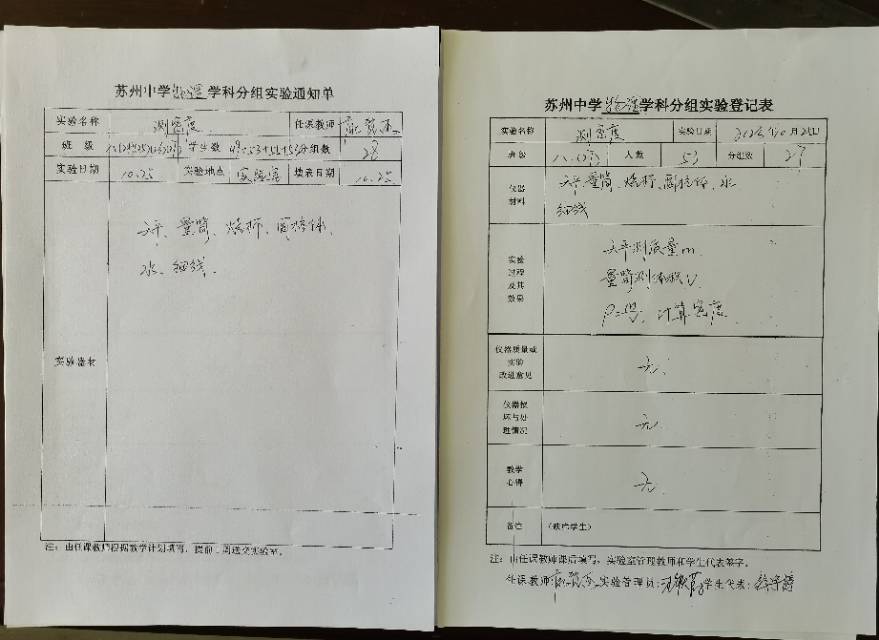 苏州中学物理学科分组实验通知单
实验名称 测密度 任课教师
班 级 学生数 49+53+51+53 分组数 28
实验日期 10.25 实验地点 实验室 填表日期 10.25
天平、量筒、烧杯、圆柱体、
水、细线.
实验器材
注：由任课教师根据教学计划填写，提前一周送交实验室。
苏州中学物理学科分组实验登记表
实验名称 测密度 实验日期
班级 人数 53 分组数 27
仪器材料 天平、量筒、烧杯、圆柱体、水
细线
实验
过程
及其
数据
天平测质量m
量筒测体积V
计算密度
仪器质量或
实验
改进意见
无
仪器损
坏与处
理情况
无
教学
心得
无
备注 （缺席学生）
注：由任课教师课后填写，实验室管理教师和学生代表签字。
任课教师 实验管理员： 学生代表：